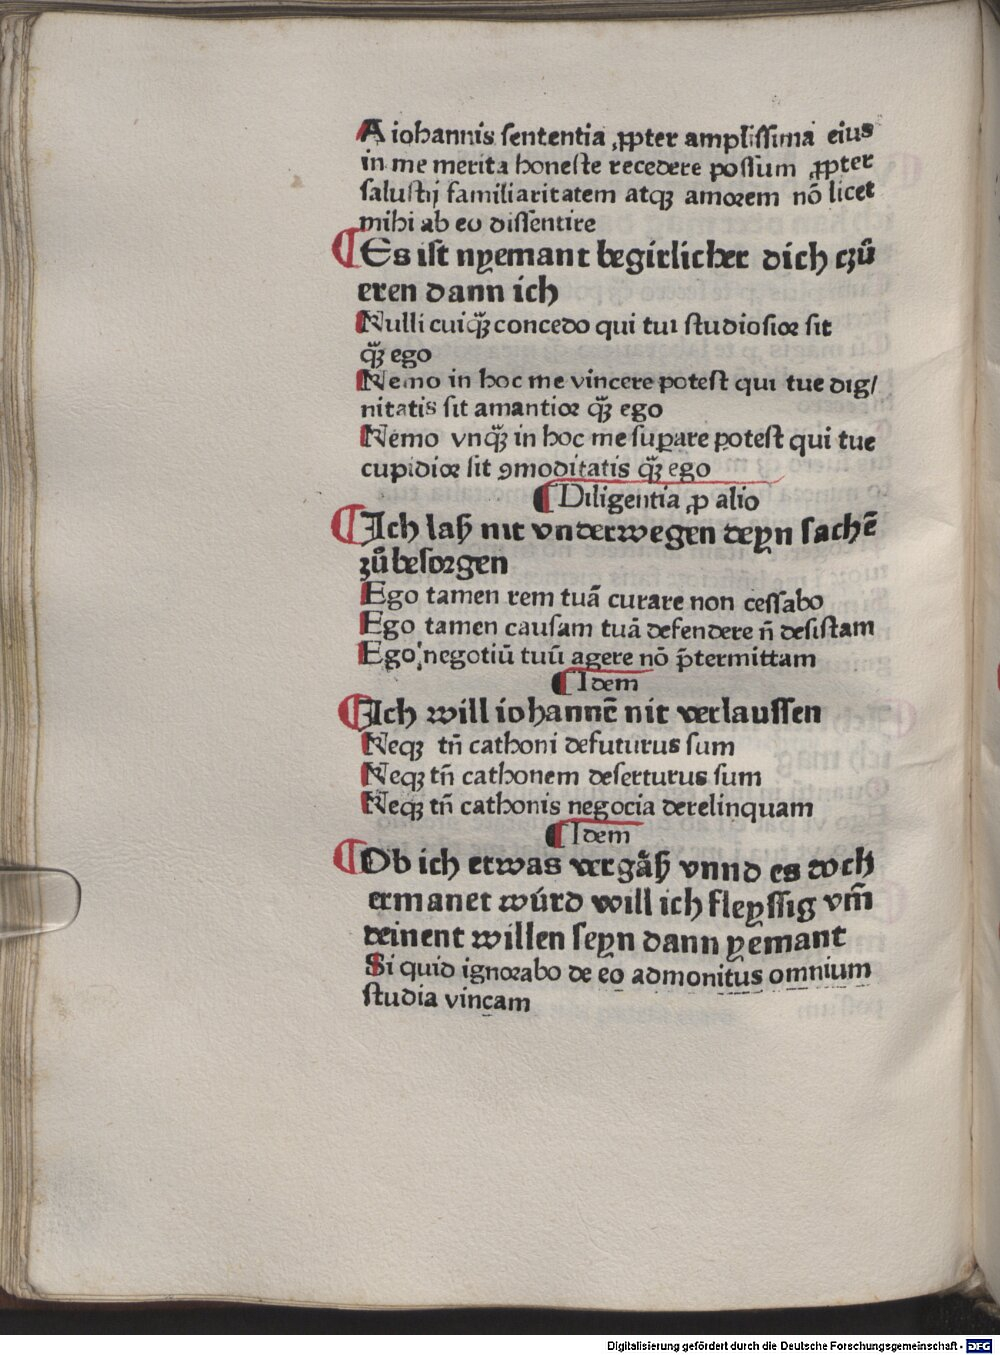 A iohannis sententia ꝓpter amplissima eius
in me merita honeste recedere possum ꝓpter
salustij familiaritatem atqꝫ amorem nō licet
mihi ab eo dissentire
¶Es ist nyemant begirlicher dich czuͦ
eren dann ich
Nulli cuiqꝫ̄ concedo qui tui studiosior sit
qꝫ̄ ego
Nemo in hoc me vincere potest qui tue dig/
nitatis sit amantior qꝫ̄ ego
Nemo vnqꝫ̄ in hoc me suꝑare potest qui tue
cupidior sit ꝯmoditatis qꝫ̄ ego
¶Diligentia ꝓ alio
¶Ich laß nit vnderwegen deyn sachē
zuͦ besorgen
Ego tamen rem tuā curare non cessabo
Ego tamen causam tuā defendere n̄ desistam
Ego negotiū tuū agere nō p̄termittam
¶Idem
¶Ich will iohannē nit verlaussen
Neqꝫ tn̄ cathoni defuturus sum
Neqꝫ tn̄ cathonem deserturus sum
Neqꝫ tn̄ cathonis negocia derelinquam
¶Idem
¶Ob ich etwas vergaͤß vnnd es doch
ermanet wúrd will ich fleyssig vm̄
deinent willen seyn dann yemant
Si quid ignorabo de eo admonitus omnium
studia vincam
Digitalisierung gefördert durch die Deutsche Forschungsgemeinschaft - DFG